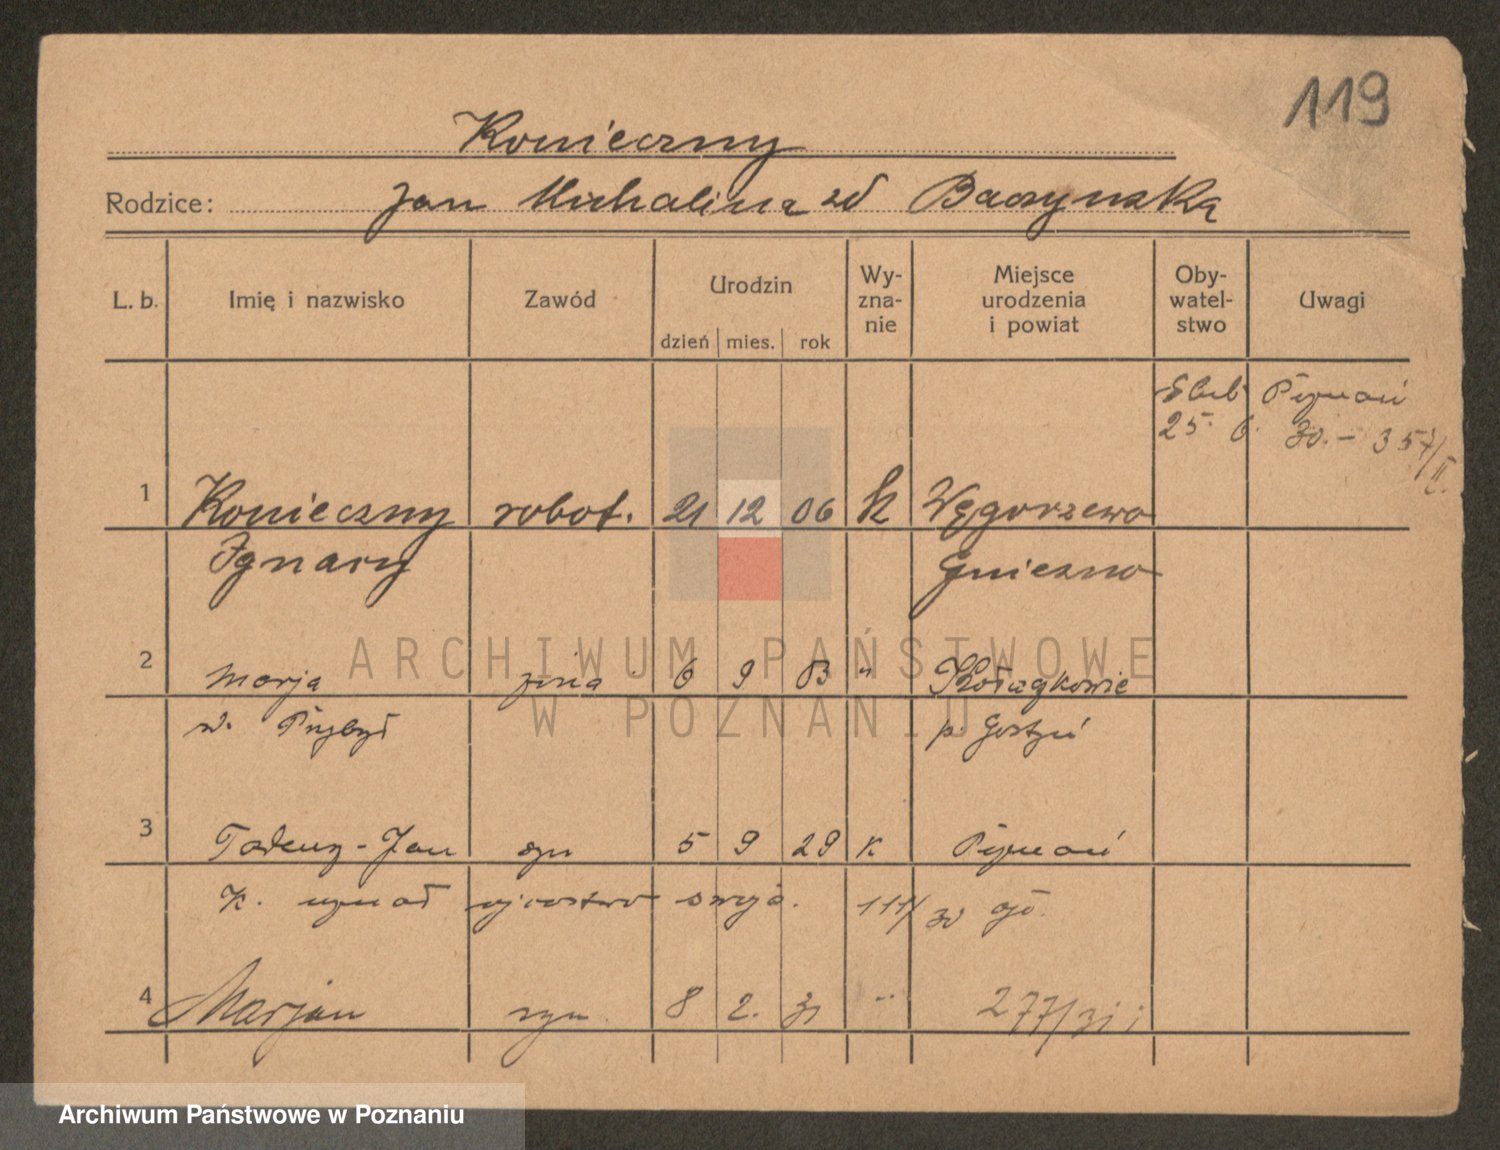 119
Konieczny
Rodzice: Jan Michalina zd Baczynską
L. b. Imię i nazwisko Zawód Urodzin dzień mies. rok Wyznanie Miejsce urodzenia i powiat Obywatelstwo Uwagi
Ślub Poznań
25. 6. 30. – 357/II.
1 Konieczny robot. 21 12 06 k Węgorzewo
Ignacy Gniezno
2 Marja żona 6 9 03 "
ARCHIWUM PAŃSTWOWE
W POZNANIU
Przybył p. Gostyń
3 Tadeusz-Jan syn 5 9 29 k Poznań
K. uznał ojcostwo swoje. 111/30
4 Marjan syn 8 2. 31 " 277/31
Archiwum Państwowe w Poznaniu